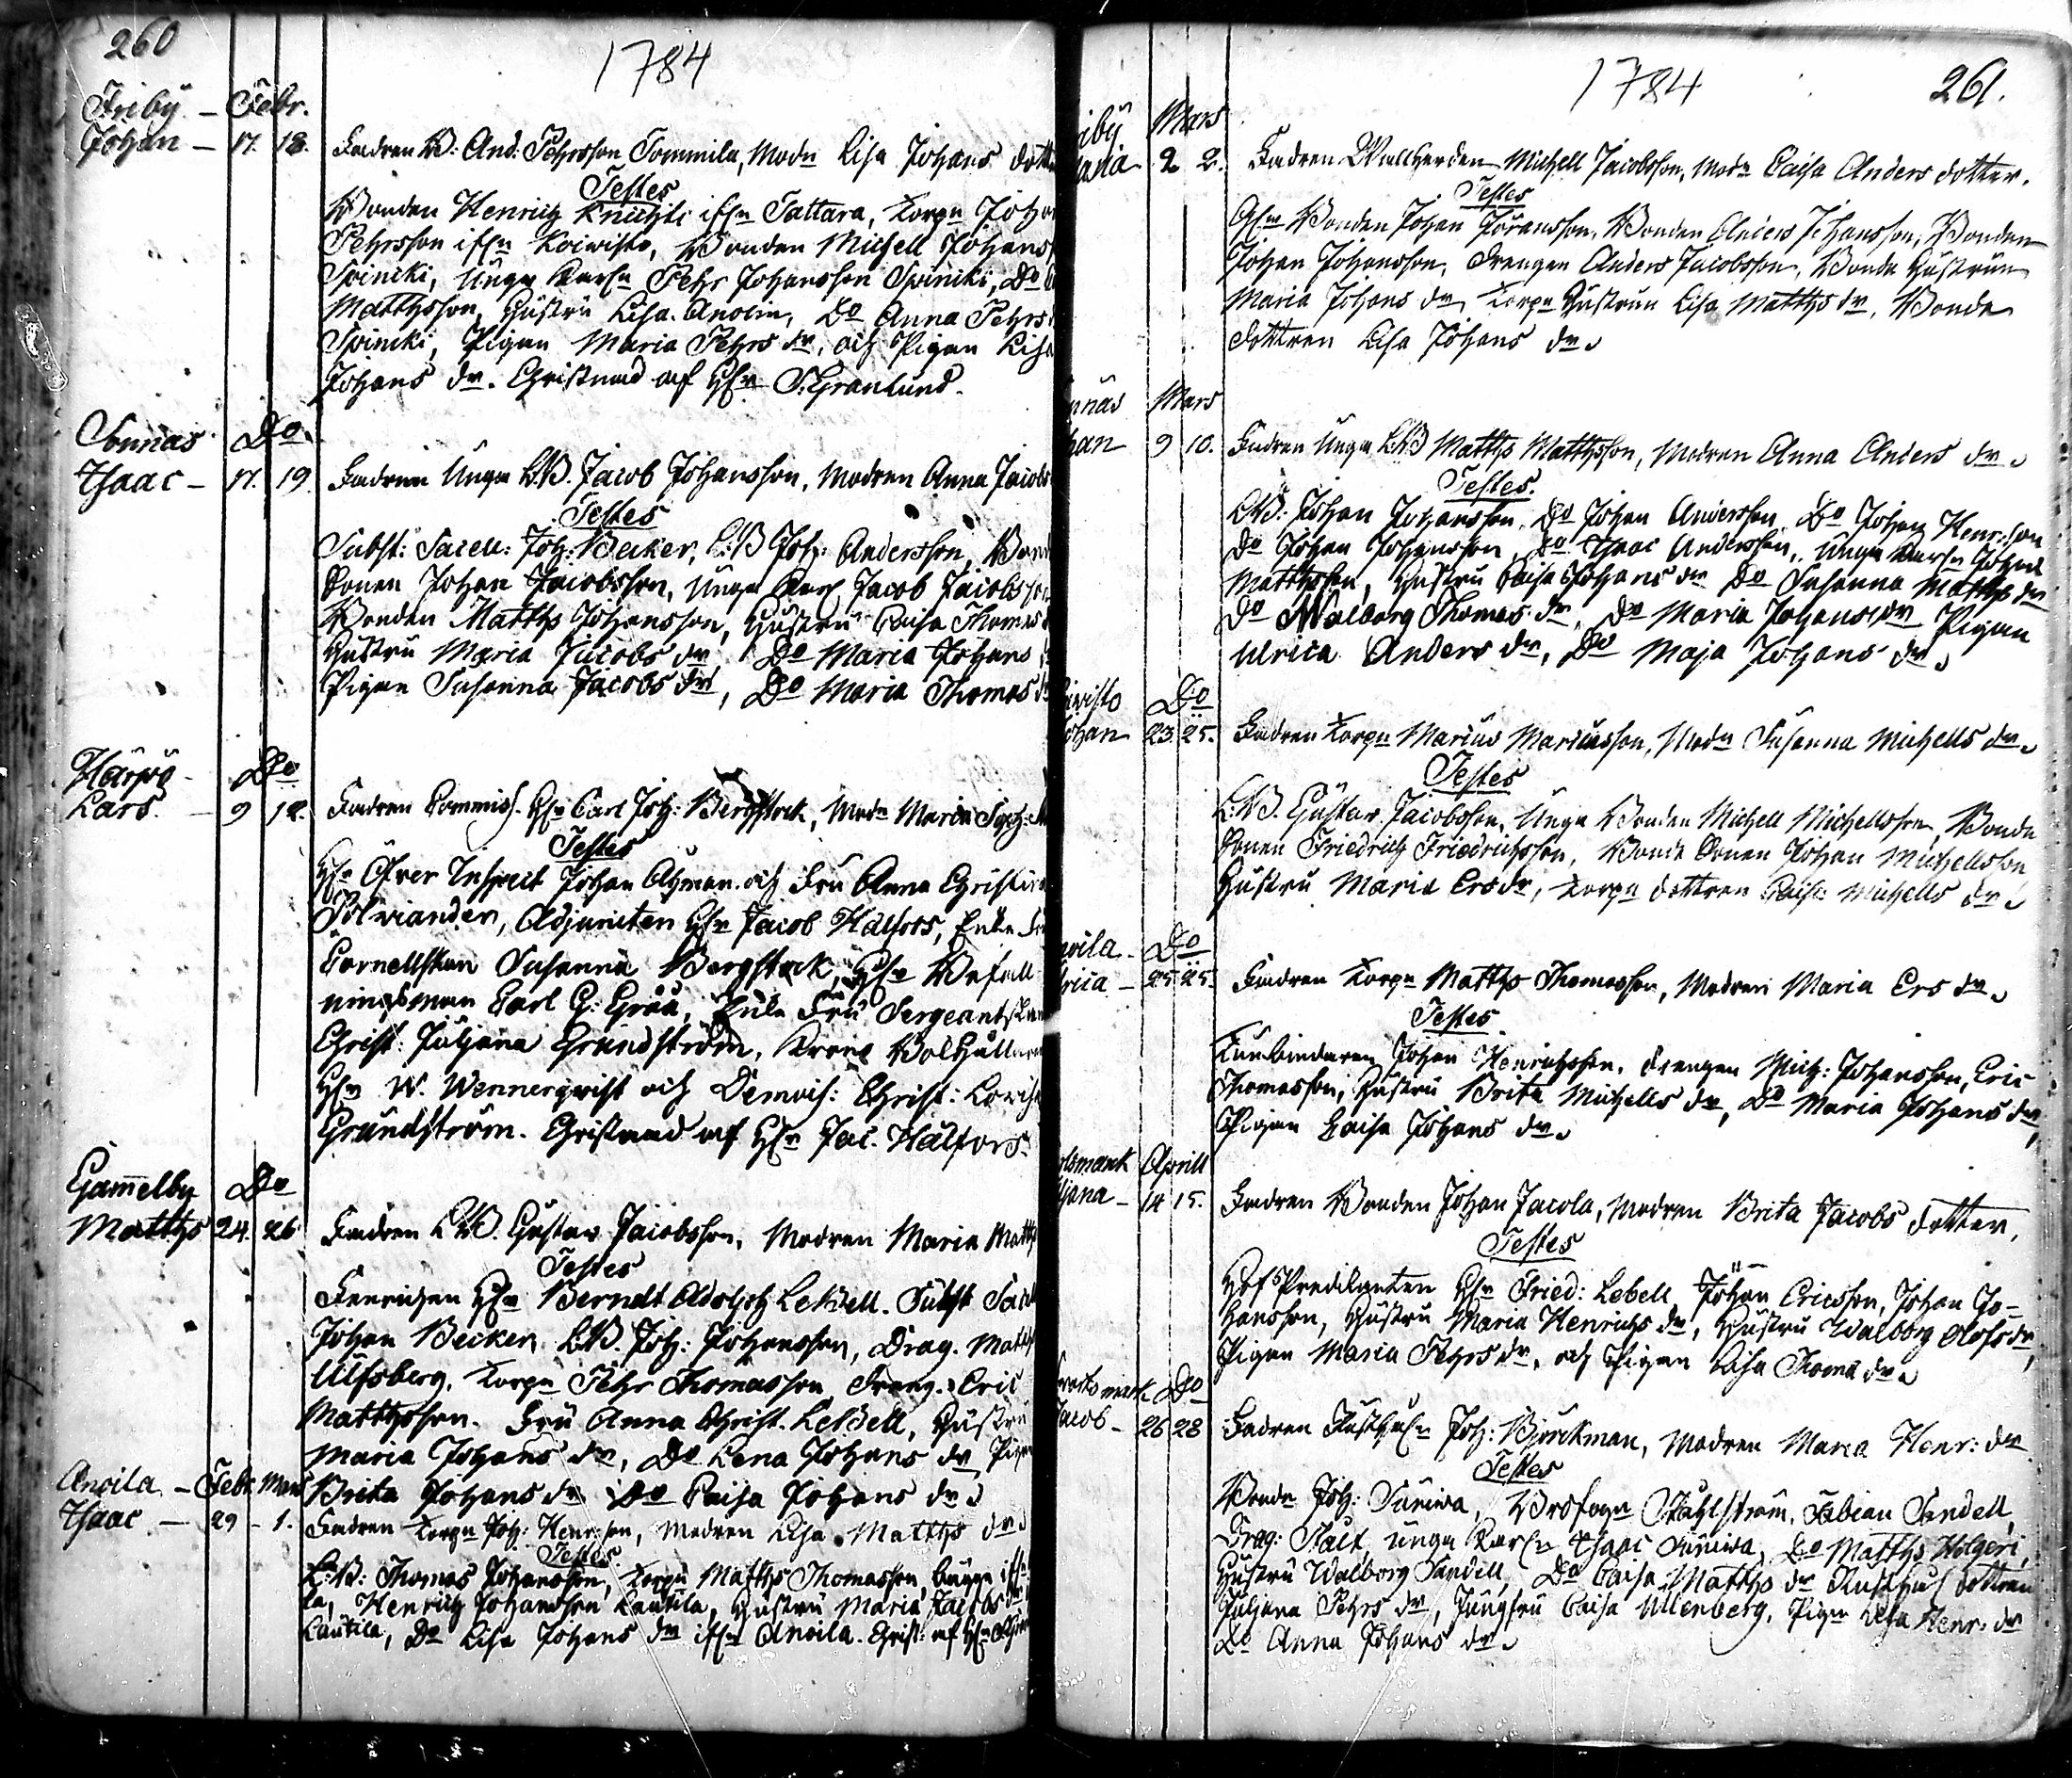 260
1784
Friby - Febr.
Johan - 17. 18. Fadren B: And: Pehrsson Tommila, Modn Lisa Johans dott
Testes
Bonden Henrich Knichti ifrn Sattara, Torpn Joha
Pehrsson ifrn Koivisto, Bonden Michell Johans
Spiniki, Unga Karln Pehr Johansson Spiniki, Do
Matthsson, Hustru Lisa Anolin, Do Anna Pehrs
Spiniki, Pigan Maria Pehrs dr, och Pigan Lisa
Johans dr. Christnad af Hr S. Granlund.
Sonnäs Do
Isaac - 17. 19. Fadren Unga L.B. Jacob Johansson, Modren Anna Jacobs
Testes
Subst: Sacell: Joh: Becker, L:B Joh: Andersson, Bond
Sonen Johan Jacobsson, Unga Karl Jacob Jacobsson
Bonden Matths Johansson, Hustru Caisa Thomas
Hustru Maria Jacobs dr, Do Maria Johans
Pigan Susanna Jacobs dr, Do Maria Thomas dr
Do
Lars. - 9 12. Fadren Commiss. Hr Carl Joh: Bergstock, Modn Maria
Testes
Hr Öfver Inspect Johan Ahman och Fru Anna Christina
Polviander, Adjuncten Hr Jacob Hälfors, Enke Fr
Cornettskan Susanna Bergstock, Hr Befall-
ningsman Carl G: Gråå, Enke Fru Sergeantskan
Christ: Juljana Grundström, Krono
Hr W. Wennerqvist och Demois: Christ: Lovisa
Grundström. Christnad af Hr Jac. Hälfors
Gammelby Do
Matths 24. 26 Fadren L.B. Gustav Jacobsson, Modren Maria Matths
Testes
Fenrichen Hr Berndt Adolph Lebell. Subst Sacell
Johan Becker, L.B. Joh: Johansson, Drag. Matths
Ulfsberg, Torpn Pehr Thomasson, Dreng. Eric
Matthsson. Fru Anna Christ. Lebell, Hustru
Maria Johans dr, Do Lena Johans dr, Pigan
Brita Johans dr Do Caisa Johans dr
Anoila - Febr. Mars
Isaac - 29 - 1. Fadren Torpn Joh: Henrsson, Modren Lisa Matths dr
Testes
L:B: Thomas Johansson, Torpn Matths Thomasson, bägge ifrn
la, Henrich Johansson Lautila, Hustru Maria Jacobs dr
Lautila, Do Lisa Johans dr ifrn Anoila. Christ: af Hr
1784
261.
iby Mars
aria 2 2. Fadren Wallherden Michell Jacobsson, Modn Caisa Anders dotter.
Testes
Bonden Johan Jöransson, Bonden Anders Johansson, Bonden
Johan Johansson, Drengen Anders Jacobsson, Bonde Hustrun
Maria Johans dr, Torpn Hustrun Lisa Matths dr, Bonde
dottren Lisa Johans dr
nnäs Mars
han 9 10. Fadren Unga L:B Matths Matthsson, Modren Anna Anders dr
Testes.
L:B: Johan Johansson, Do Johan Andersson, Do Johan Henrsson
Do Johan Johansson, Do Isaac Andersson, Unga Karln Johan
Matthsson, Hustru Caisa Johans dr Do Susanna Matths dr
Do Walborg Thomas dr, Do Maria Johans dr Pigan
Ulrica Anders dr, Do Maja Johans dr
ivisto Do
ohan 23. 25. Fadren Torpn Marcus Marcusson, Modn Susanna Michells dr
Testes
L:B. Gustav Jacobsson, Unga Bonden Michell Michellsson, Bonde
Sonen Friedrich Friedrichsson, Bonde Sonen Johan Michellsson
Hustru Maria Ers dr, Torpn dottren Caisa Michells dr
oila - Do
rica - 25 25. Fadren Torpn Matths Thomasson, Modren Maria Ers dr
Testes
Johan Henrichsson, Drengen Mich: Johansson, Eric
Thomasson, Hustru Brita Michells dr, Do Maria Johans dr,
Pigan Caisa Johans dr
lsmark Aprill
ljana - 14 15. Fadren Bonden Johan Jacola, Modren Brita Jacobs dotter,
Testes
Hofs Predikanten Hr Fried: Lebell, Johan Ericsson, Johan Jo-
hansson, Hustru Maria Henrichs dr, Hustru Walborg Olofs dr,
Pigan Maria Pehrs dr, och Pigan Lisa Thoma dr
mark Do
Jacob - 26 28 Fadren Joh: Björckman, Modren Maria Henr: dr
Testes
Bonde Joh: Suniva, Ståhlström, Fabian Sandell,
Drag: Stalt, Unga Karln Isaac Suniva, Do Matths Holgeri,
Hustru Walborg Sandell, Do Caisa Matths dr dottren
Juljana Pehrs dr, Jungfru Caisa Ullenberg, Pign Lisa Henr. dr
Do Anna Johans dr